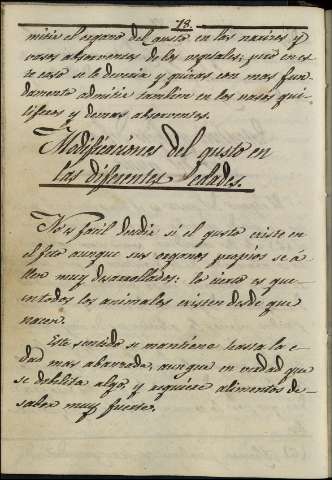 13.
mitir el organo del gusto en las raices y
vasos absorventes de los vegetales; pero en es
te caso se le deveria y quizas con mas fun
damento admitir tambien en los vasos qui
liferos y demas absorventes.
Modificaciones del gusto en
las diferentes edades.
No es facil decidir si el gusto existe en
el feto aunque sus organos propios se á
llen muy desarrollados: lo cierto es que
en todos los animales existen desde que
nacen.
Este sentido se mantiene hasta la e
dad mas abanzada, aunque en verdad que
se debilita algo, y requiere alimentos de
sabor muy fuerte.